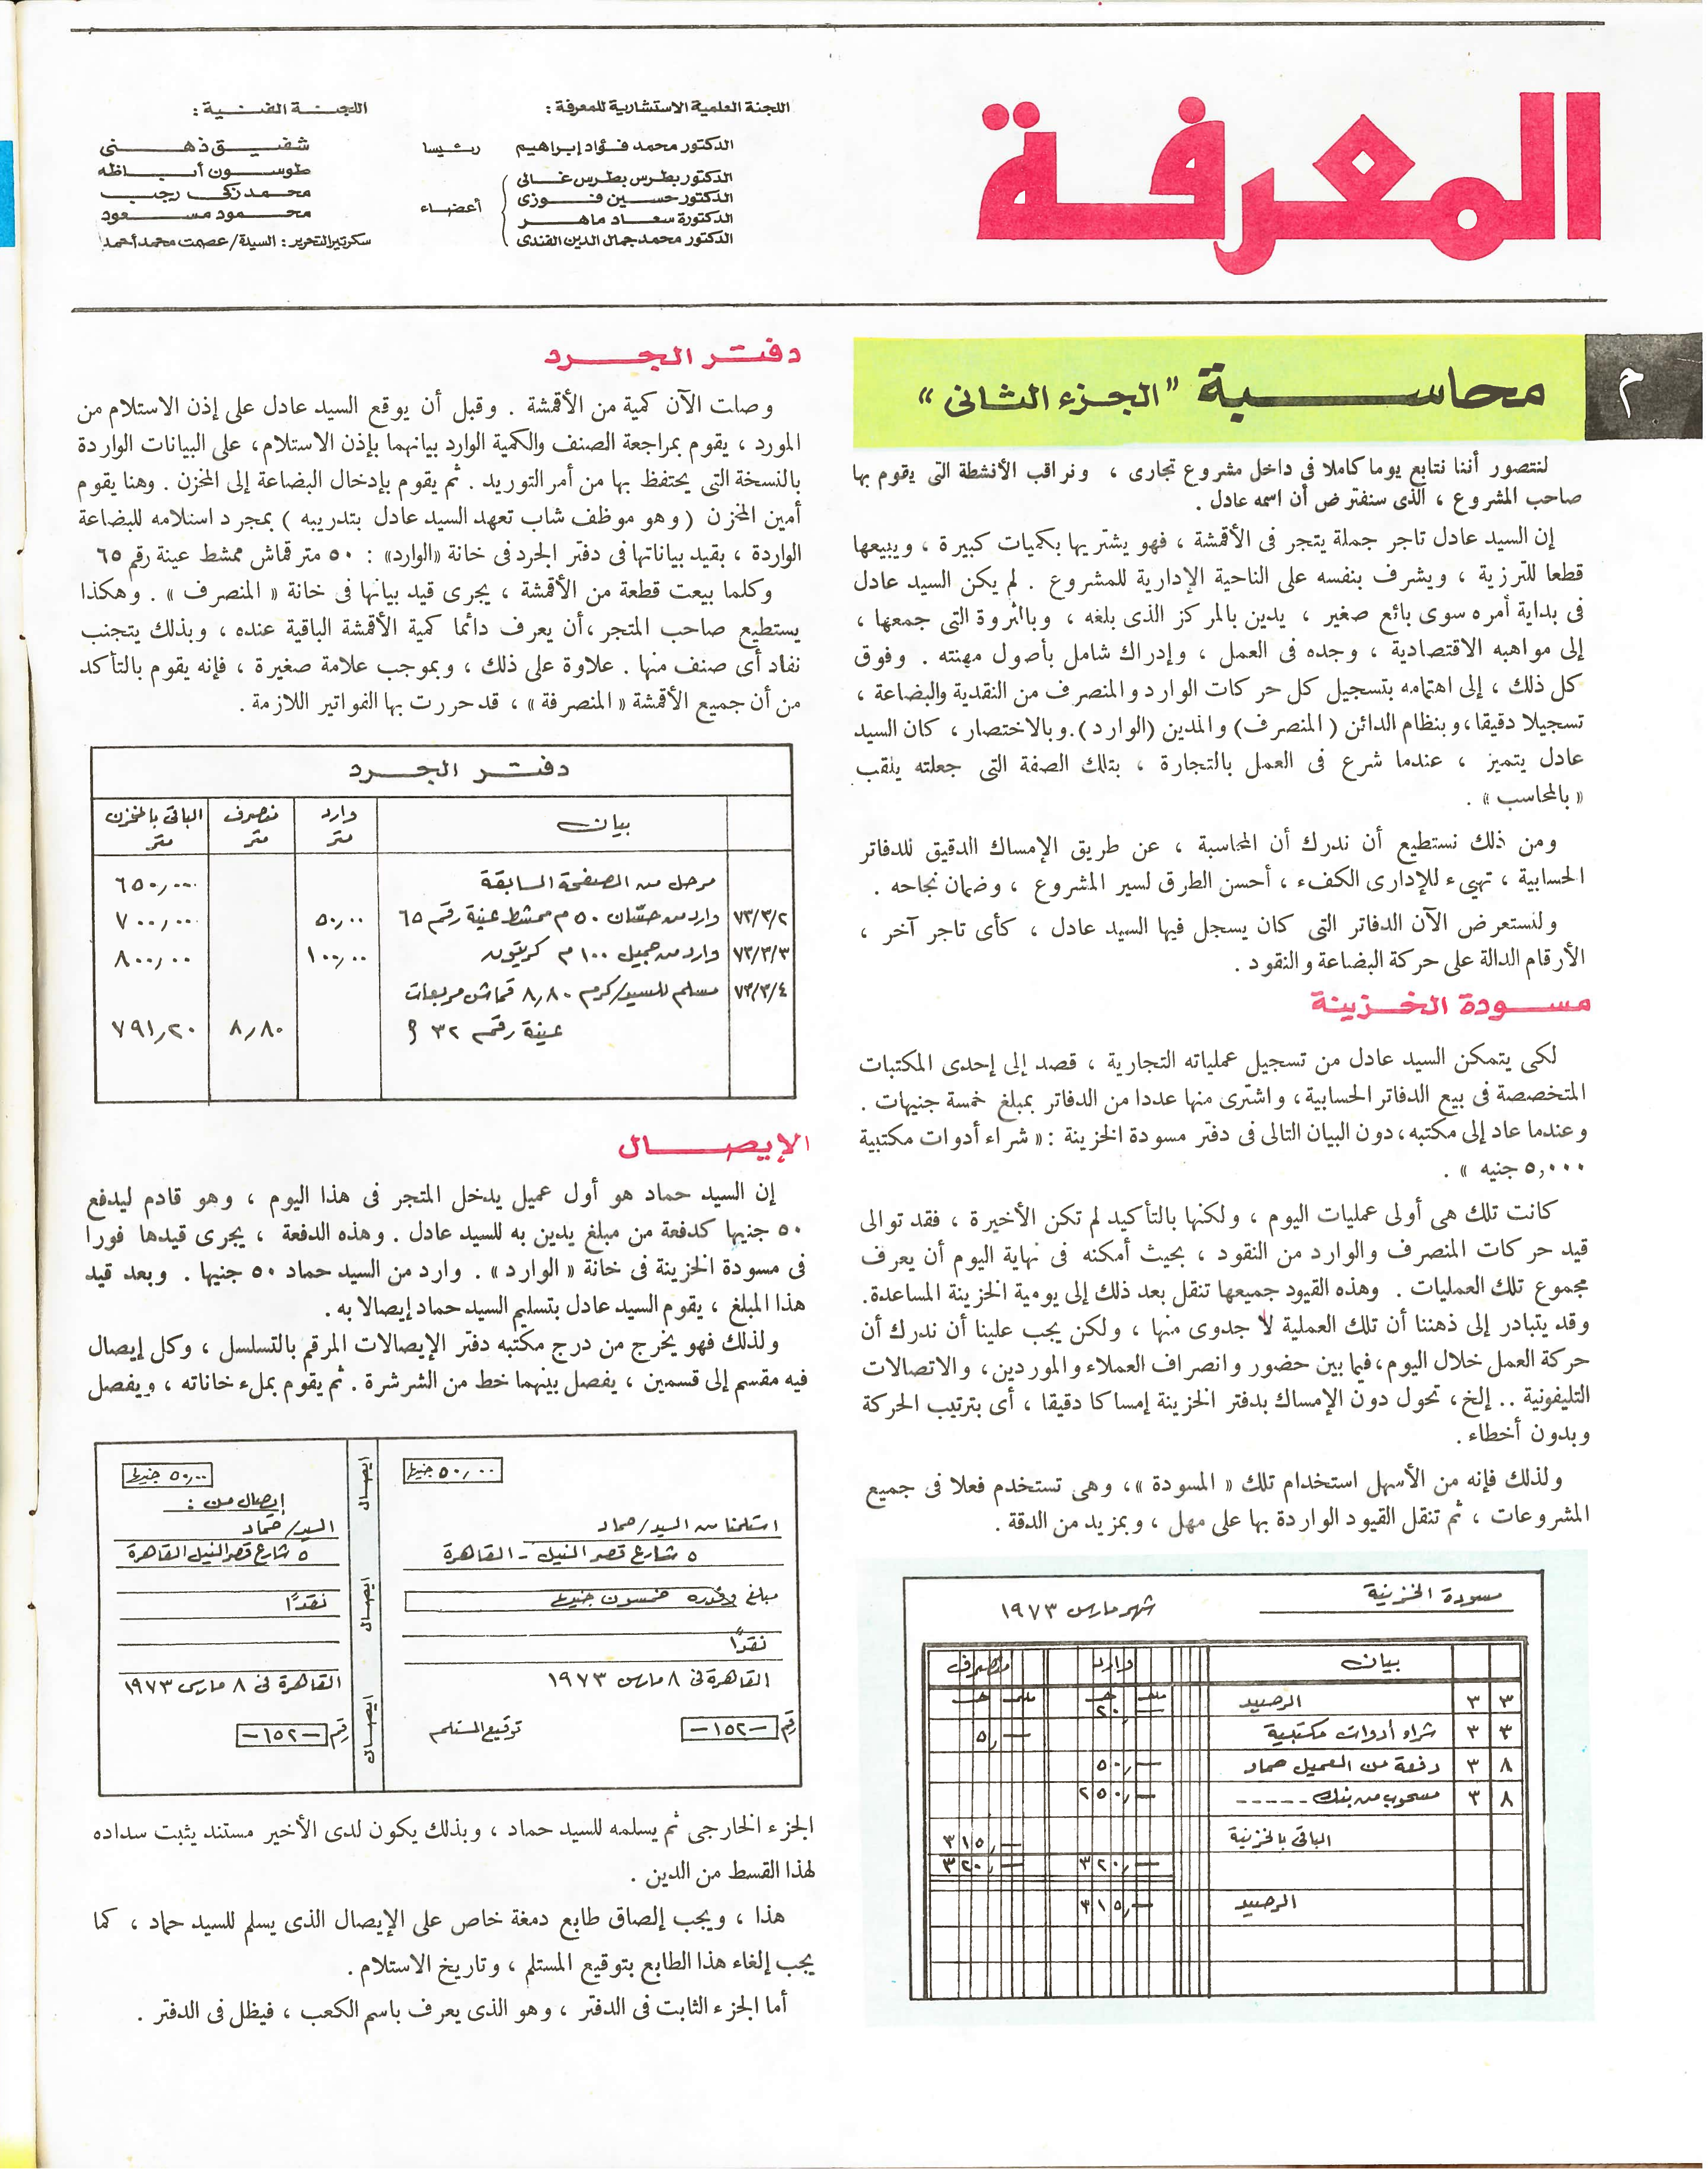 المعرفة
اللجنة العلمية الاستشارية للمعرفة :
الدكتور محمد فؤاد إبراهيم رئيسا
الدكتور بطرس بطرس غالى
الدكتور حسين فوزى
الدكتورة سعاد ماهر
الدكتور محمد جمال الدين الفندى
أعضاء
اللجنة الفنية :
شفيق ذهنى
طوسون أباظه
محمد زكى رجب
محمود مسعود
سكرتير التحرير : السيدة/ عصمت محمد أحمد
م
محاسبة "الجزء الثانى"
لنتصور أننا نتابع يوما كاملا فى داخل مشروع تجارى ، ونراقب الأنشطة التى يقوم بها
صاحب المشروع ، الذى سنفترض أن اسمه عادل .
إن السيد عادل تاجر جملة يتجر فى الأقمشة ، فهو يشتريها بكميات كبيرة ، ويبيعها
قطعا للترزية ، ويشرف بنفسه على الناحية الإدارية للمشروع . لم يكن السيد عادل
فى بداية أمره سوى بائع صغير ، يدين بالمركز الذى بلغه ، وبالثروة التى جمعها ،
إلى مواهبه الاقتصادية ، وجده فى العمل ، وإدراك شامل بأصول مهنته . وفوق
كل ذلك ، إلى اهتمامه بتسجيل كل حركات الوارد والمنصرف من النقدية والبضاعة ،
تسجيلا دقيقا، وبنظام الدائن ( المنصرف) والمدين (الوارد). وبالاختصار ، كان السيد
عادل يتميز ، عندما شرع فى العمل بالتجارة ، بتلك الصفة التى جعلته يلقب
« بالمحاسب » .
ومن ذلك نستطيع أن ندرك أن المحاسبة ، عن طريق الإمساك الدقيق للدفاتر
الحسابية ، تهيىء للإدارى الكفء ، أحسن الطرق لسير المشروع ، وضمان نجاحه .
ولنستعرض الآن الدفاتر التى كان يسجل فيها السيد عادل ، كأى تاجر آخر ،
الأرقام الدالة على حركة البضاعة والنقود .
مسودة الخزينة
لكى يتمكن السيد عادل من تسجيل عملياته التجارية ، قصد إلى إحدى المكتبات
المتخصصة فى بيع الدفاتر الحسابية، واشترى منها عددا من الدفاتر بمبلغ خمسة جنيهات .
وعندما عاد إلى مكتبه، دون البيان التالى فى دفتر مسودة الخزينة : « شراء أدوات مكتبية
٥,٠٠٠ جنيه » .
كانت تلك هى أولى عمليات اليوم ، ولكنها بالتأكيد لم تكن الأخيرة ، فقد توالى
قيد حركات المنصرف والوارد من النقود ، بحيث أمكنه فى نهاية اليوم أن يعرف
مجموع تلك العمليات . وهذه القيود جميعها تنقل بعد ذلك إلى يومية الخزينة المساعدة.
وقد يتبادر إلى ذهننا أن تلك العملية لا جدوى منها ، ولكن يجب علينا أن ندرك أن
حركة العمل خلال اليوم، فيما بين حضور وانصراف العملاء والموردين، والاتصالات
التليفونية .. إلخ، تحول دون الإمساك بدفتر الخزينة إمساكا دقيقا ، أى بترتيب الحركة
وبدون أخطاء .
ولذلك فإنه من الأسهل استخدام تلك « المسودة »، وهى تستخدم فعلا فى جميع
المشروعات ، ثم تنقل القيود الواردة بها على مهل ، وبمزيد من الدقة .
مسودة الخزينة
شهر مارس ١٩٧٣
بيان وارد منصرف
مليم جـ مليم جـ
٣ ٣ الرصيد ٢٠,—
٣ ٣ شراء أدوات مكتبية ٥,—
٨ ٣ دفعة من العميل حماد ٥٠,—
٨ ٣ مسحوب من بنك ----- ٢٥٠,—
الباقى بالخزينة ٣١٥,—
٣٢٠,— ٣٢٠,—
الرصيد ٣١٥,—
دفتر الجرد
وصلت الآن كمية من الأقمشة . وقبل أن يوقع السيد عادل على إذن الاستلام من
المورد ، يقوم بمراجعة الصنف والكمية الوارد بيانهما بإذن الاستلام، على البيانات الواردة
بالنسخة التى يحتفظ بها من أمر التوريد . ثم يقوم بإدخال البضاعة إلى المخزن . وهنا يقوم
أمين المخزن ( وهو موظف شاب تعهد السيد عادل بتدريبه ) بمجرد استلامه للبضاعة
الواردة ، بقيد بياناتها فى دفتر الجرد فى خانة «الوارد» : ٥٠ متر قماش ممشط عينة رقم ٦٥
وكلما بيعت قطعة من الأقمشة ، يجرى قيد بيانها فى خانة « المنصرف » . وهكذا
يستطيع صاحب المتجر ،أن يعرف دائما كمية الأقمشة الباقية عنده ، وبذلك يتجنب
نفاد أى صنف منها . علاوة على ذلك ، وبموجب علامة صغيرة ، فإنه يقوم بالتأكد
من أن جميع الأقمشة « المنصرفة » ، قد حررت بها الفواتير اللازمة .
دفتر الجرد
بيان وارد متر منصرف متر الباقى بالمخزن متر
مرحل من الصفحة السابقة ٦٥٠,٠٠
٧٣/٣/٢ وارد من حسّان ٥٠ م ممشط عينة رقم ٦٥ ٥٠,٠٠ ٧٠٠,٠٠
٧٣/٣/٣ وارد من جميل ١٠٠ م كريتون ١٠٠,٠٠ ٨٠٠,٠٠
٧٣/٣/٤ مسلم للسيد/كرم ٨,٨٠ قماش مربعات
عينة رقم ٣٢ م ٨,٨٠ ٧٩١,٢٠
الإيصال
إن السيد حماد هو أول عميل يدخل المتجر فى هذا اليوم ، وهو قادم ليدفع
٥٠ جنيها كدفعة من مبلغ يدين به للسيد عادل . وهذه الدفعة ، يجرى قيدها فورا
فى مسودة الخزينة فى خانة « الوارد» . وارد من السيد حماد ٥٠ جنيها . وبعد قيد
هذا المبلغ ، يقوم السيد عادل بتسليم السيد حماد إيصالا به .
ولذلك فهو يخرج من درج مكتبه دفتر الإيصالات المرقم بالتسلسل ، وكل إيصال
فيه مقسم إلى قسمين ، يفصل بينهما خط من الشرشرة . ثم يقوم بملء خاناته ، ويفصل
٥٠,٠٠ جنيها
استلمنا من السيد/حماد
٥ شارع قصر النيل - القاهرة
مبلغ وقدره خمسون جنيها
نقدًا
القاهرة فى ٨ مارس ١٩٧٣
رقم —١٥٢— توقيع المستلم
ايصال
ايصال
ايصال
٥٠,٠٠ جنيها
إيصال من :
السيد/حماد
٥ شارع قصر النيل القاهرة
نقدًا
القاهرة فى ٨ مارس ١٩٧٣
رقم —١٥٢—
الجزء الخارجى ثم يسلمه للسيد حماد ، وبذلك يكون لدى الأخير مستند يثبت سداده
لهذا القسط من الدين .
هذا ، ويجب إلصاق طابع دمغة خاص على الإيصال الذى يسلم للسيد حماد ، كما
يجب إلغاء هذا الطابع بتوقيع المستلم ، وتاريخ الاستلام .
أما الجزء الثابت فى الدفتر ، وهو الذى يعرف باسم الكعب ، فيظل فى الدفتر .